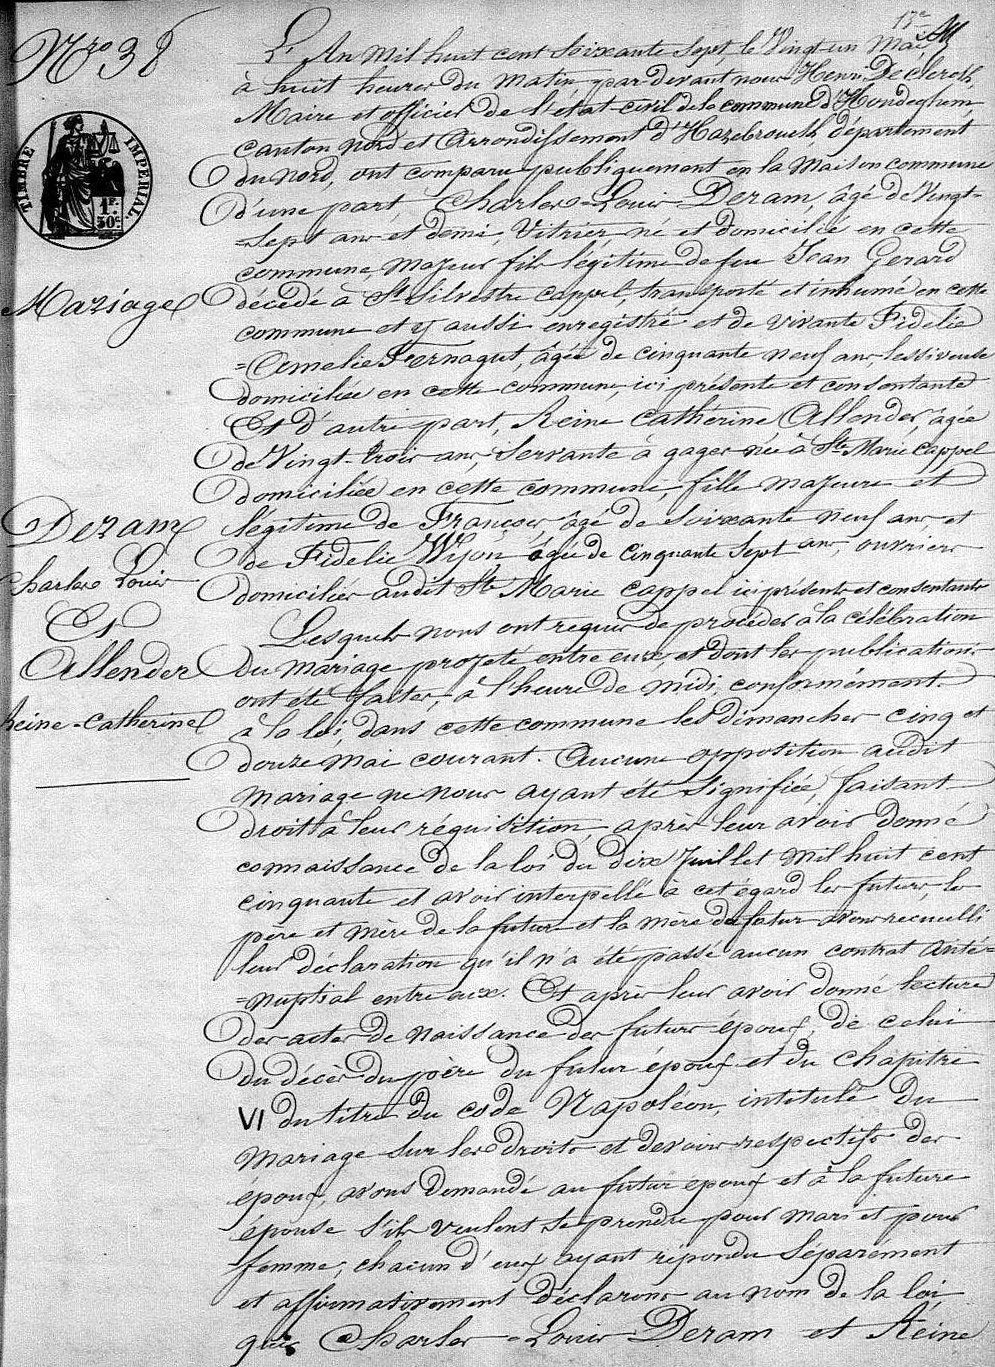 17e
Nro 38
L'An Mil huit cent soixante sept, le Vingt un Mai,
à huit heures du Matin par devant nous Henri De clerck
Maire et officier de l'état-civil de la commune d'Hondeghem,
canton nord et Arrondissement d'Hazebrouck département
du Nord, ont comparu publiquement en la Maison commune
d'une part, Charles-Louis Deram, âgé de Vingt-
=Sept ans et demi, Vitrier né et domicilié en cette
commune Majeur fils légitime de feu Jean Gerard
décédé à St Silvestre cappel, transporté et inhumé en cette
commune et y aussi enregistré et de vivante Fidelie
=Amelie Fernagut, âgée de cinquante neuf ans, lessiveuse
domiciliée en cette commune, ici présente et consentante
Et d'autre part, Reine Catherine Allender, âgée
de Vingt-trois ans, Servante à gages née à Ste Marie Cappel
domiciliée en cette commune, fille majeure et
légitime de François âgé de soixante neuf ans, et
de Fidelie Wyon âgée de cinquante sept ans, ouvriers
domiciliés audit Ste Marie cappel ici présents et consentants
Lesquels nous ont requis de procéder à la célébration
du mariage projeté entre eux, et dont les publications
ont été faites, à l'heure de midi, conformément
à la loi, dans cette commune les dimanches cinq et
douze mai courant. Aucune opposition audit
mariage ne nous ayant été signifiée, faisant
droit à leur réquisition, après leur avoir donné
connaissance de la loi du dix Juillet Mil huit cent
cinquante et avoir interpellé à cet égard les futurs, les
père et mère de la future et la mère du futur avons recueilli
leur déclaration qu'il n'a été passé aucun contrat anté=
=nuptial entre eux. Et après leur avoir donné lecture
des actes de naissance des futurs époux, de celui
du décès du père du futur époux et du chapitre
VI du titre du code Napoléon, intitulé du
mariage sur les droits et devoirs respectifs des
époux, avons demandé au futur époux et à la future
épouse s'ils veulent se prendre pour mari et pour
femme; chacun d'eux ayant répondu séparément
et affirmativement déclarons au nom de la loi
que Charles-Louis Deram et Reine
TIMBRE IMPERIAL
1F.
50c
Mariage
Deram
Charles Louis
Et
Allender
Reine-Catherine